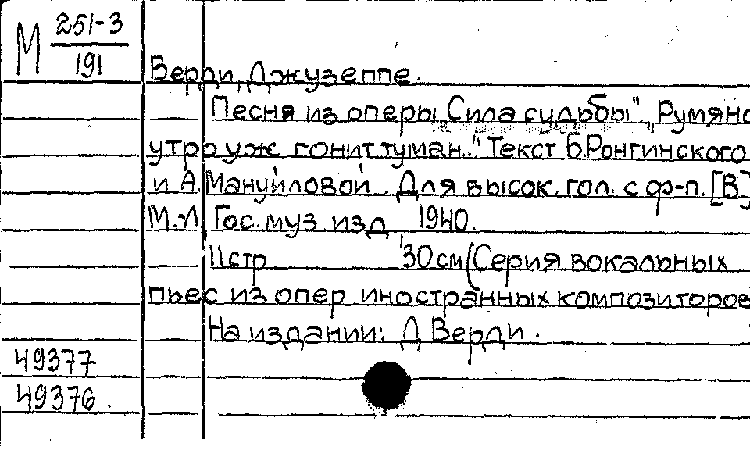 М 251-3
191
Верди, Джузеппе.
Песня из оперы „Сила судьбы". „Румяно
утро уж гонит туман..." Текст Б.Ронгинского
и А.Мануйловой. Для высок. гол. с ф-п. [В]
М.Л. Гос. муз. изд. 1940.
11 стр 30 см (Серия вокальных
пьес из опер иностранных композиторов
На издании: Д Верди.
49377
49376.